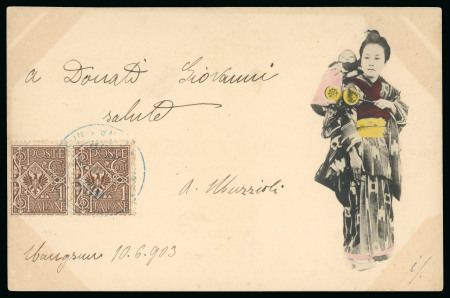 a Donati Giovanni
salute
POSTE POSTE
1 1
ITALIANE ITALIANE
a. Muzzioli
10.6.903